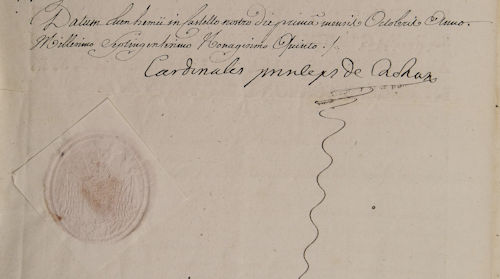 Datum Ettenhemii in Castello nostro die primâ mensis Octobris Anno
Millesimo Septingentesimo Nonagesimo Quinto ./.
Cardinales princeps de Rohan